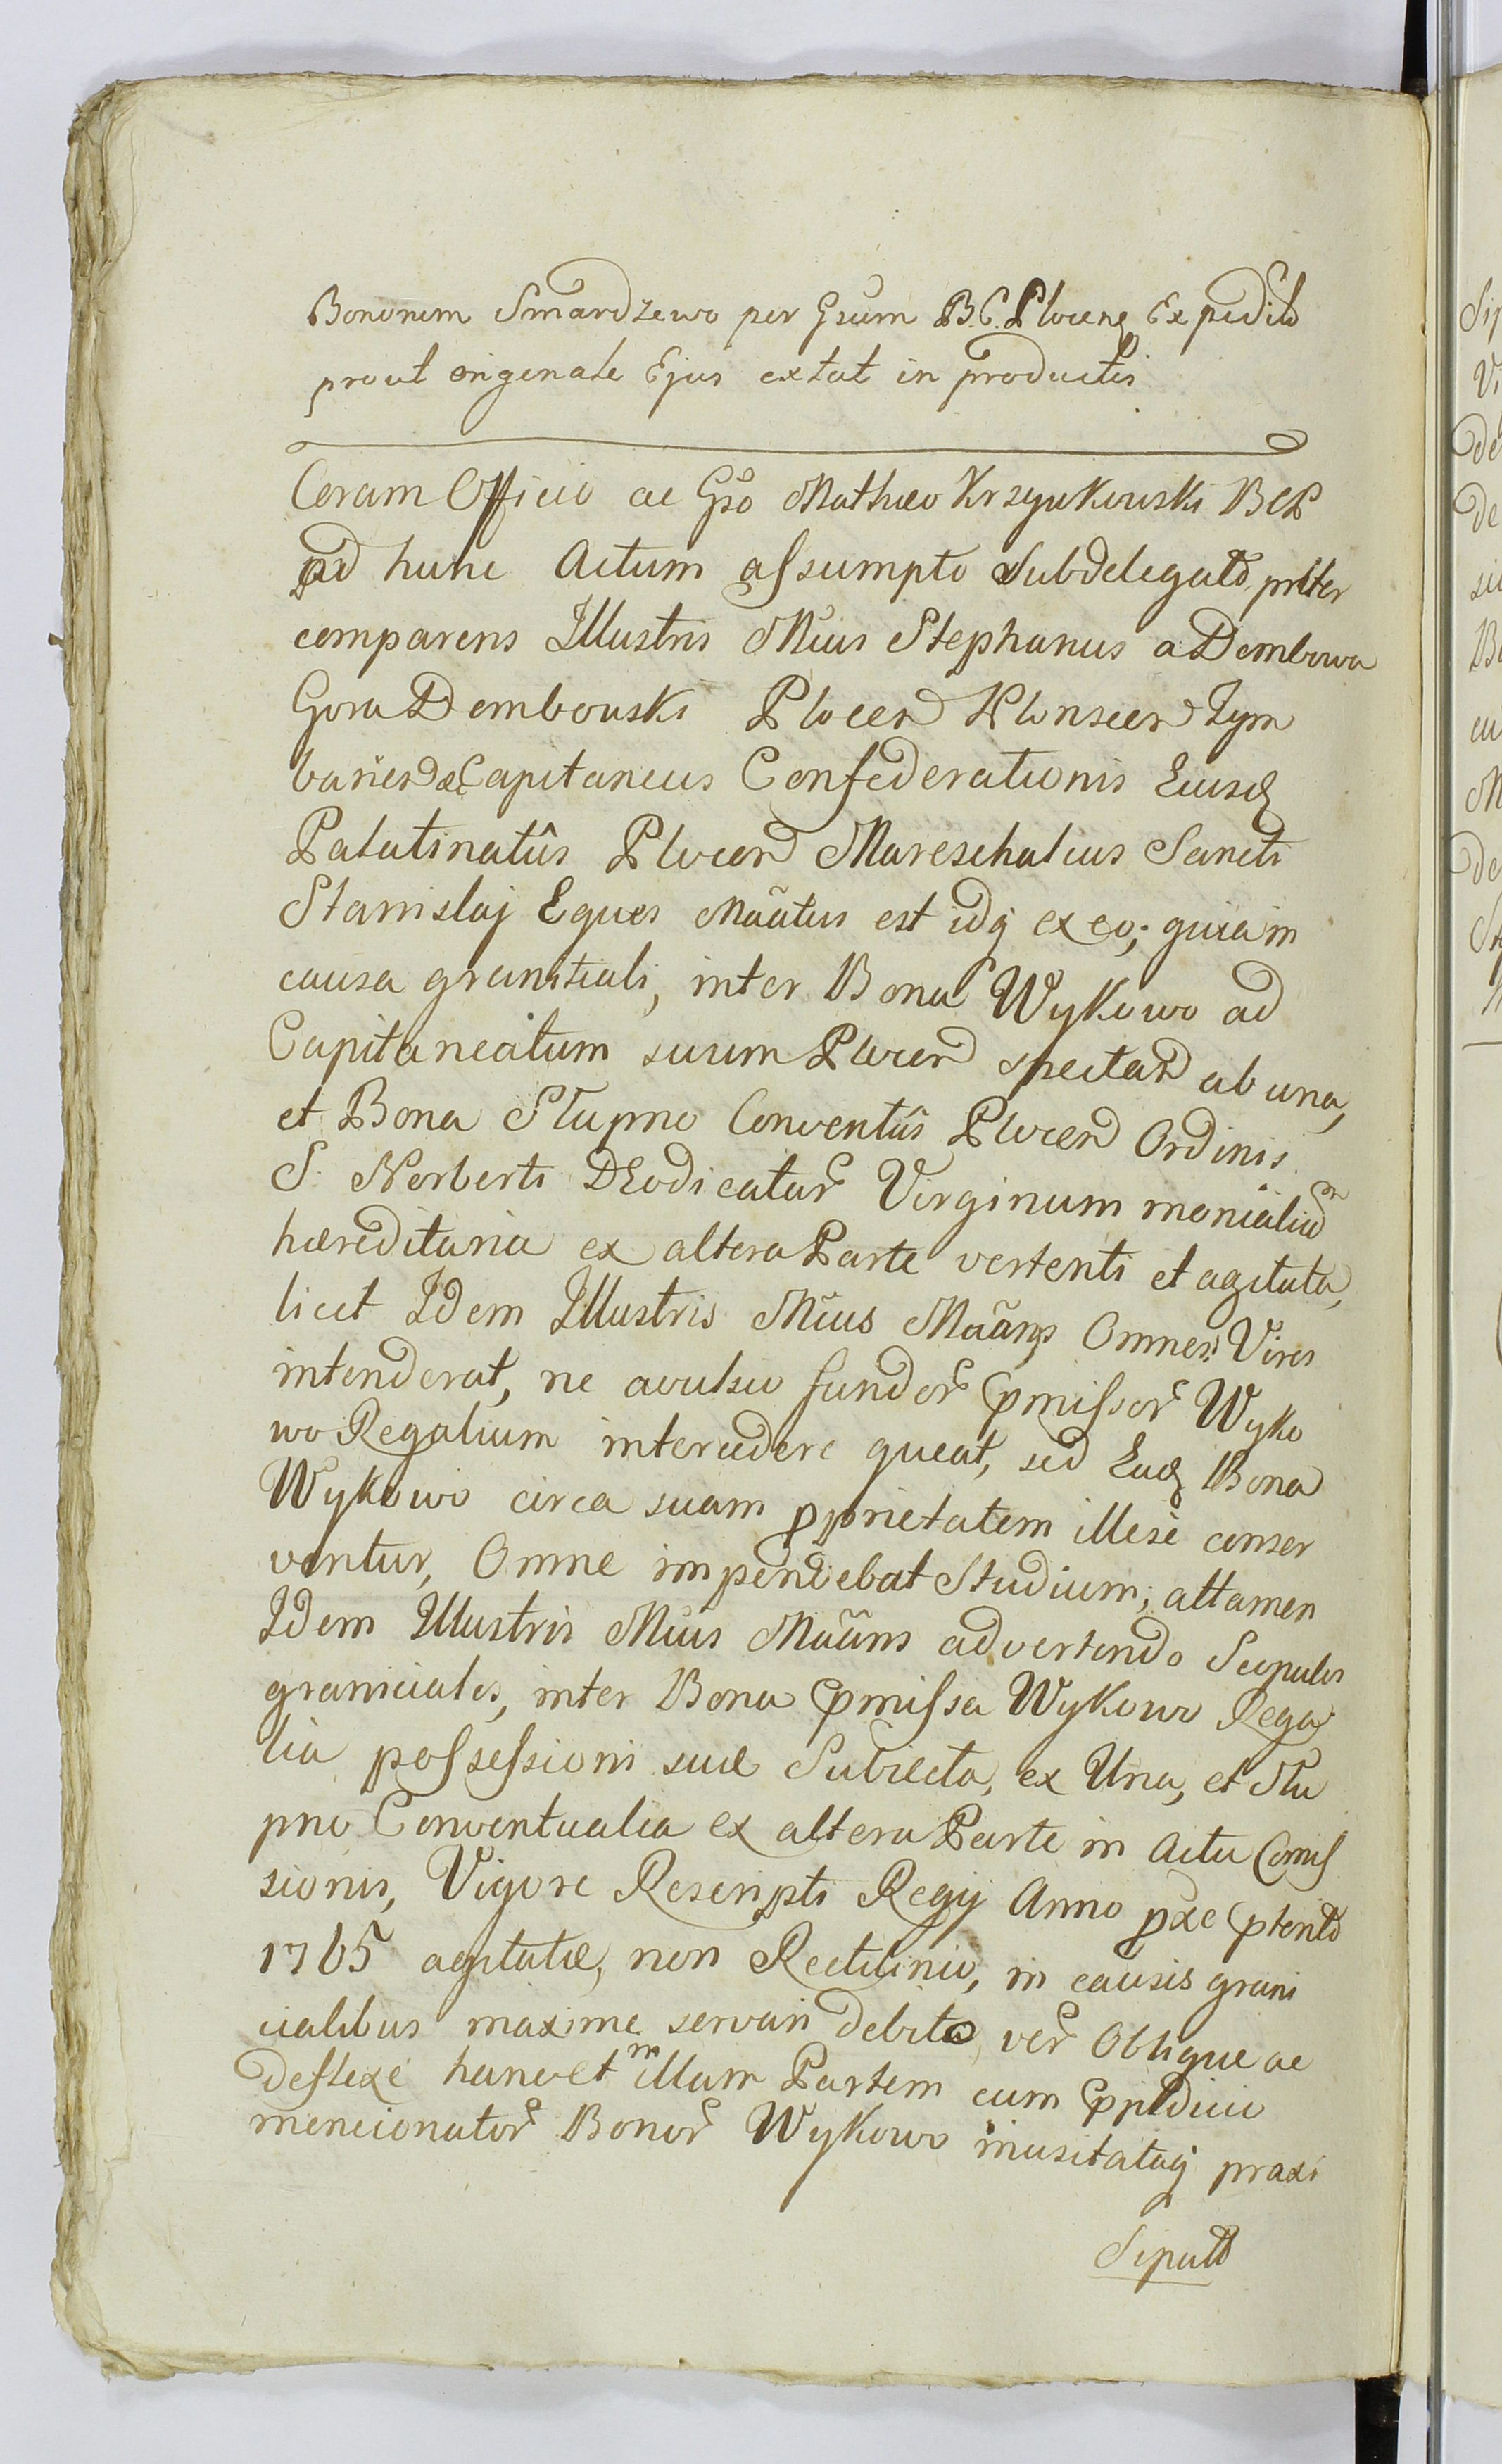 Bononem Smardzewo per Gsum B.C. Plocens Expedito
prout originale Ejus extat in productis
Coram Officio ac Gso Mathaeo Krzynkowski BCP
ad hunc Actum assumpto Subdelegato prliter
comparens Illustris Mcus Stephanus a Dembowa
Gora Dembowski Plocen Plonscen Tym
barien &c Capitaneus Confederationis Eiusd
Palatinatûs Plocen Mareschalcus Sancti
Stanislaj Eques Mãatus est idq ex eo; quia in
causa granitiali, inter Bona Wykowo ad
Capitaneatum suum Plocen spectan ab una,
et Bona Słupno Conventûs Plocen Ordinis
S. Norberti DEodicatar Virginum monialium
haereditaria ex altera Parte vertenti et agitata,
licet Idem Illustris Mcus Mãans Omnes Vires
intenderat, ne avulsio fundor pmissor Wyko
wo Regalium intercedere queat, sed Ead Bona
Wykowo circa suam pprietatem illese conser
ventur, Omne impendebat Studium; attamen
Idem Illustris Mcus Mãans advertendo Scopulos
graniciales, inter Bona pmissa Wykowo Rega
lia possessioni suae Subiecta, ex Una, et Słu
pno Conventualia ex altera Parte in Actu Comis
sionis, Vigore Rescripti Regij Anno pxe pterito
1765 agitatae, non Rectilineo, in causis grani
cialibus maxime servari debito, ver Oblique ac
deflexe hanc et illam Partem cum ppdicio
mencionator Bonor Wykowo inusitataq praxi
Siputo